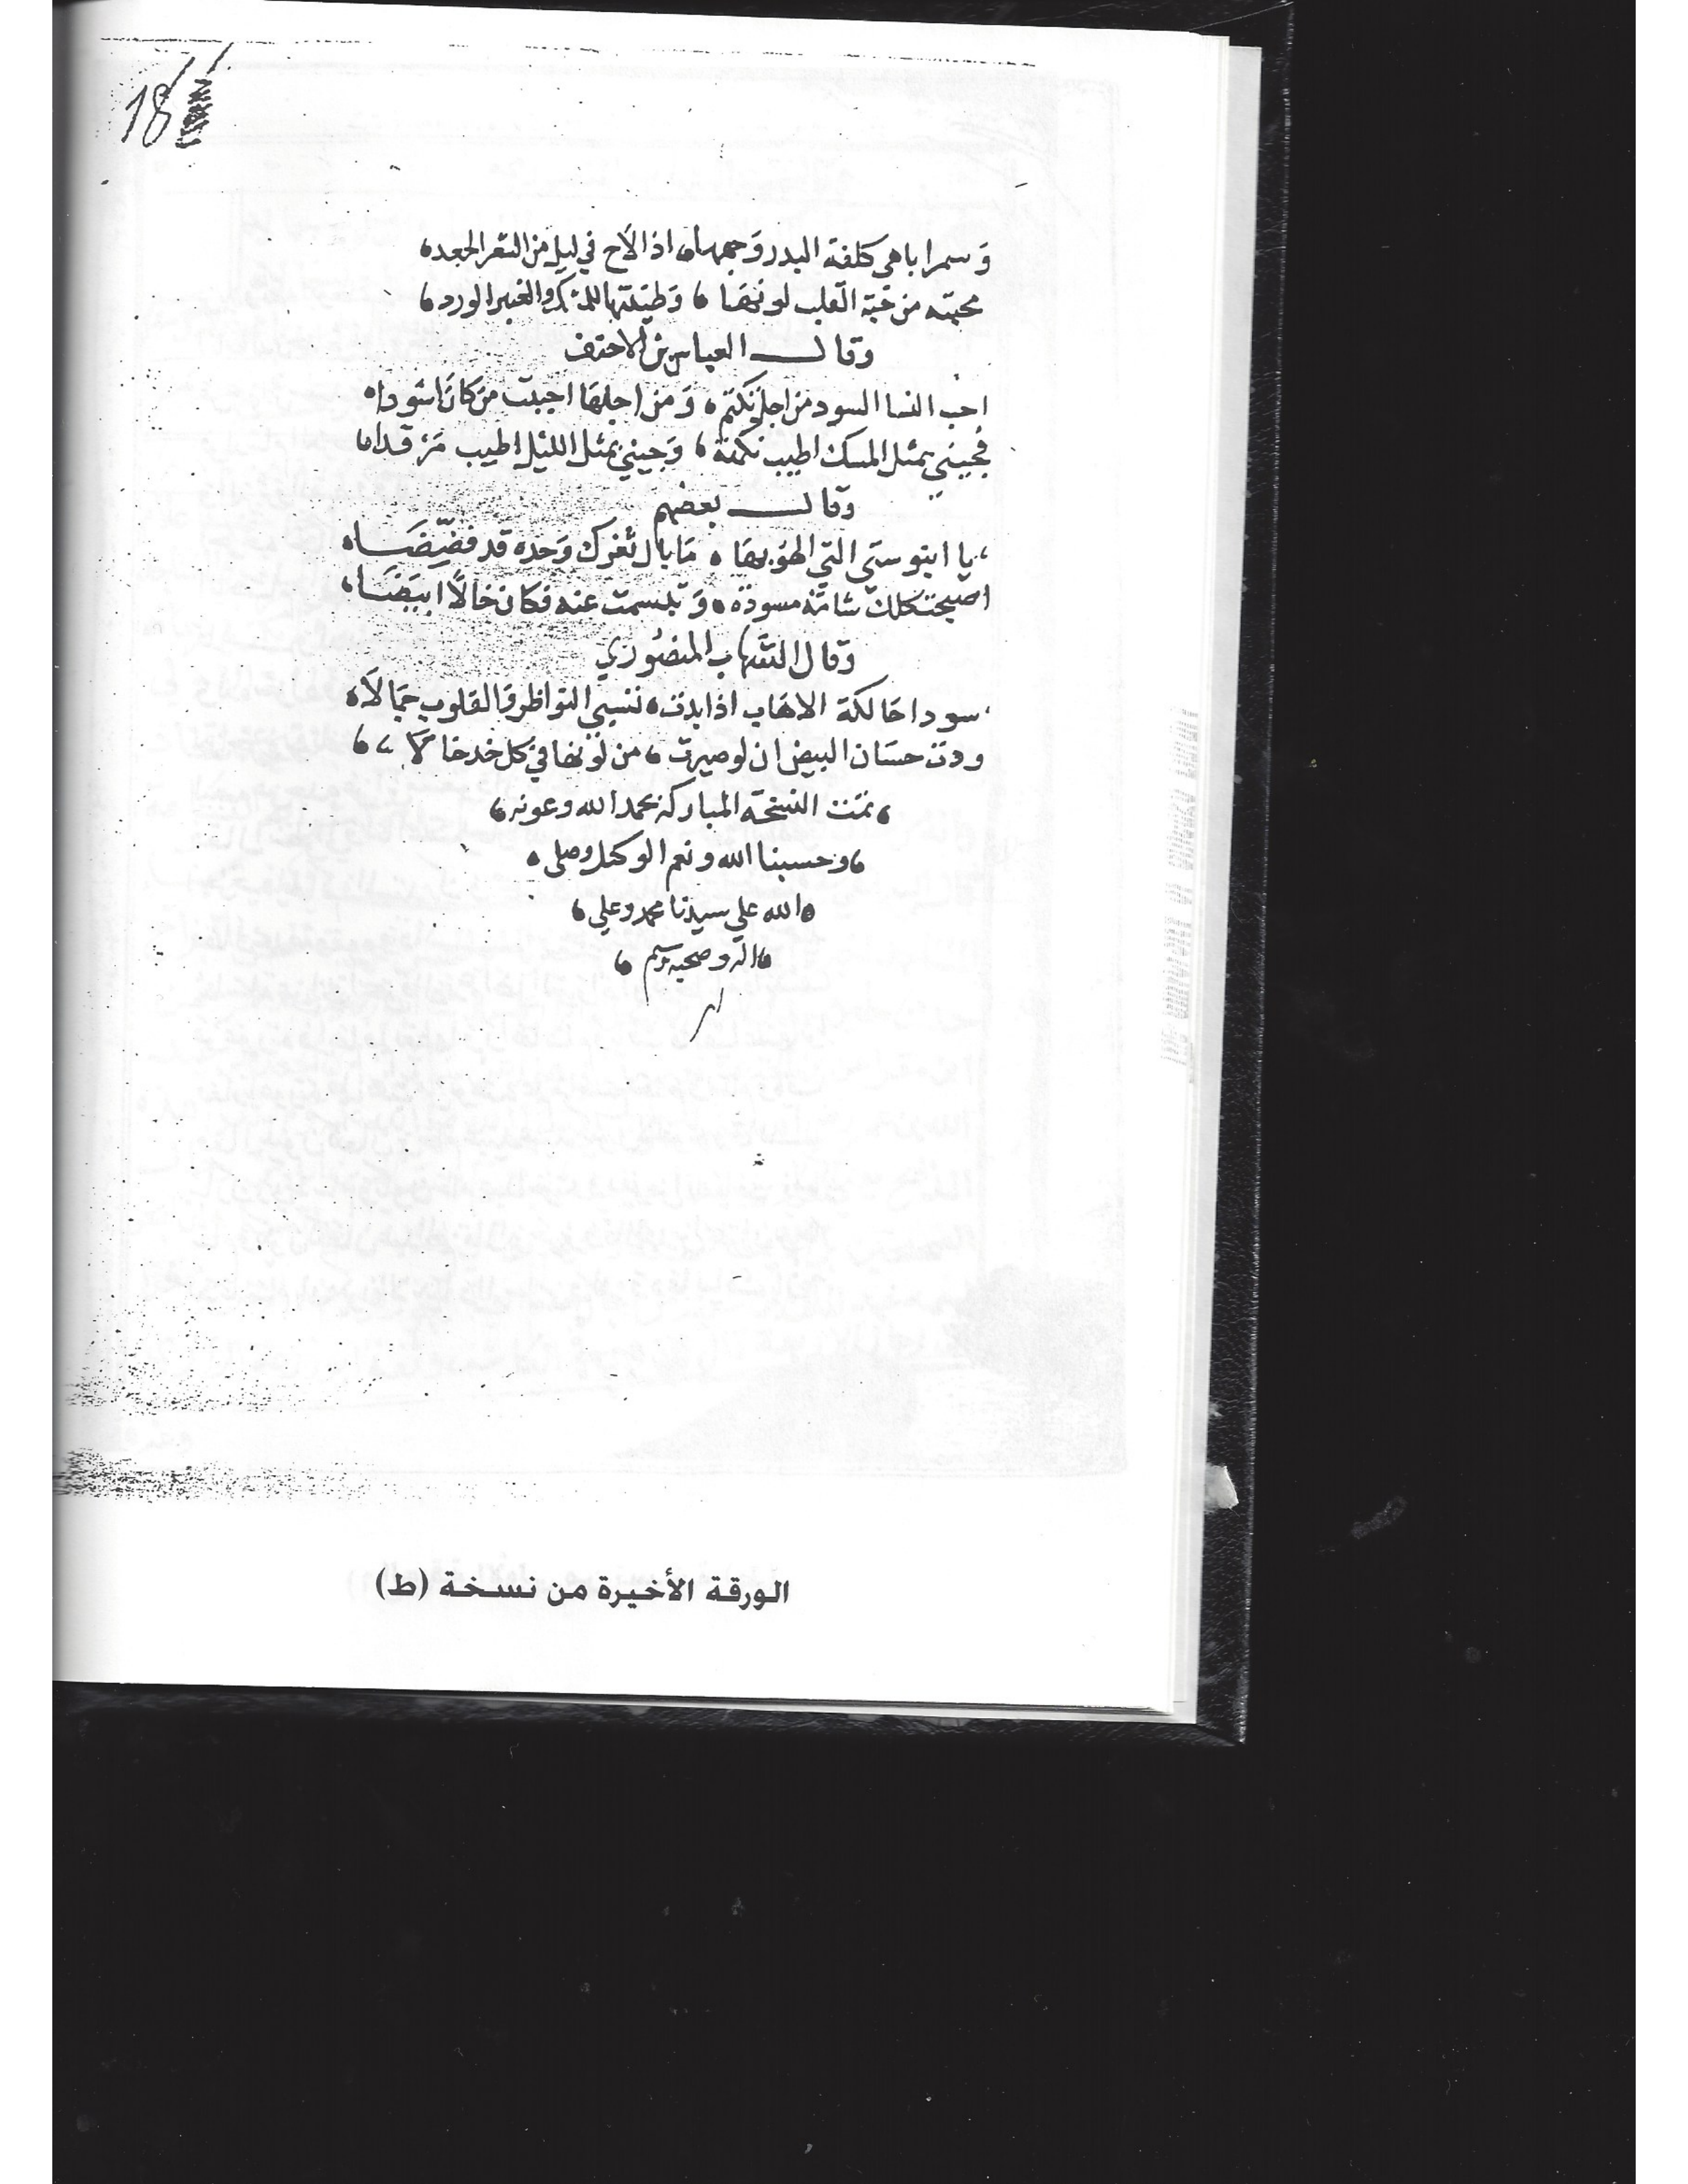 18
وَسمرا باهى كلفة البدر وَجهها، اذا لاَح في ليل من الشعر الجعد،
محبته من حَبّة القلب لونهَا، وَطينتها للمسك والعنبر الورد،
وقال العباس بن الاحنف
احب النسا السود من اجل تكتم، وَمن اجلهَا احببت من كانَ اسودا،
فجيني بمثل المسك اطيب نكهة، وَجيني بمثل الليل اطيب مَرْقدا،
وقال بعضهم
يا ابنوستي التي الهو بهَا، مَا بال ثغرك وَحده قد فضّضَا،
اصبحت كلك شامَة مسودة، وَتبسمت عنه فكان خالاً ابيَضَا،
وقال الشهاب المنصُوري
سودا حَالكة الاهَاب اذا بدت، تسبي النواظر وَالقلوب جَمالاَ،
ودت حسَان البيض ان لو صيرت، من لونها في كل خد خالاَ،
تمت النسخة المباركة بحمد الله وعونه،
وحسبنا الله ونعم الوكيل وصلى،
الله على سيدنا محمد وعلى،
اله وصحبه وسلم،
الورقة الأخيرة من نسخة (ط)